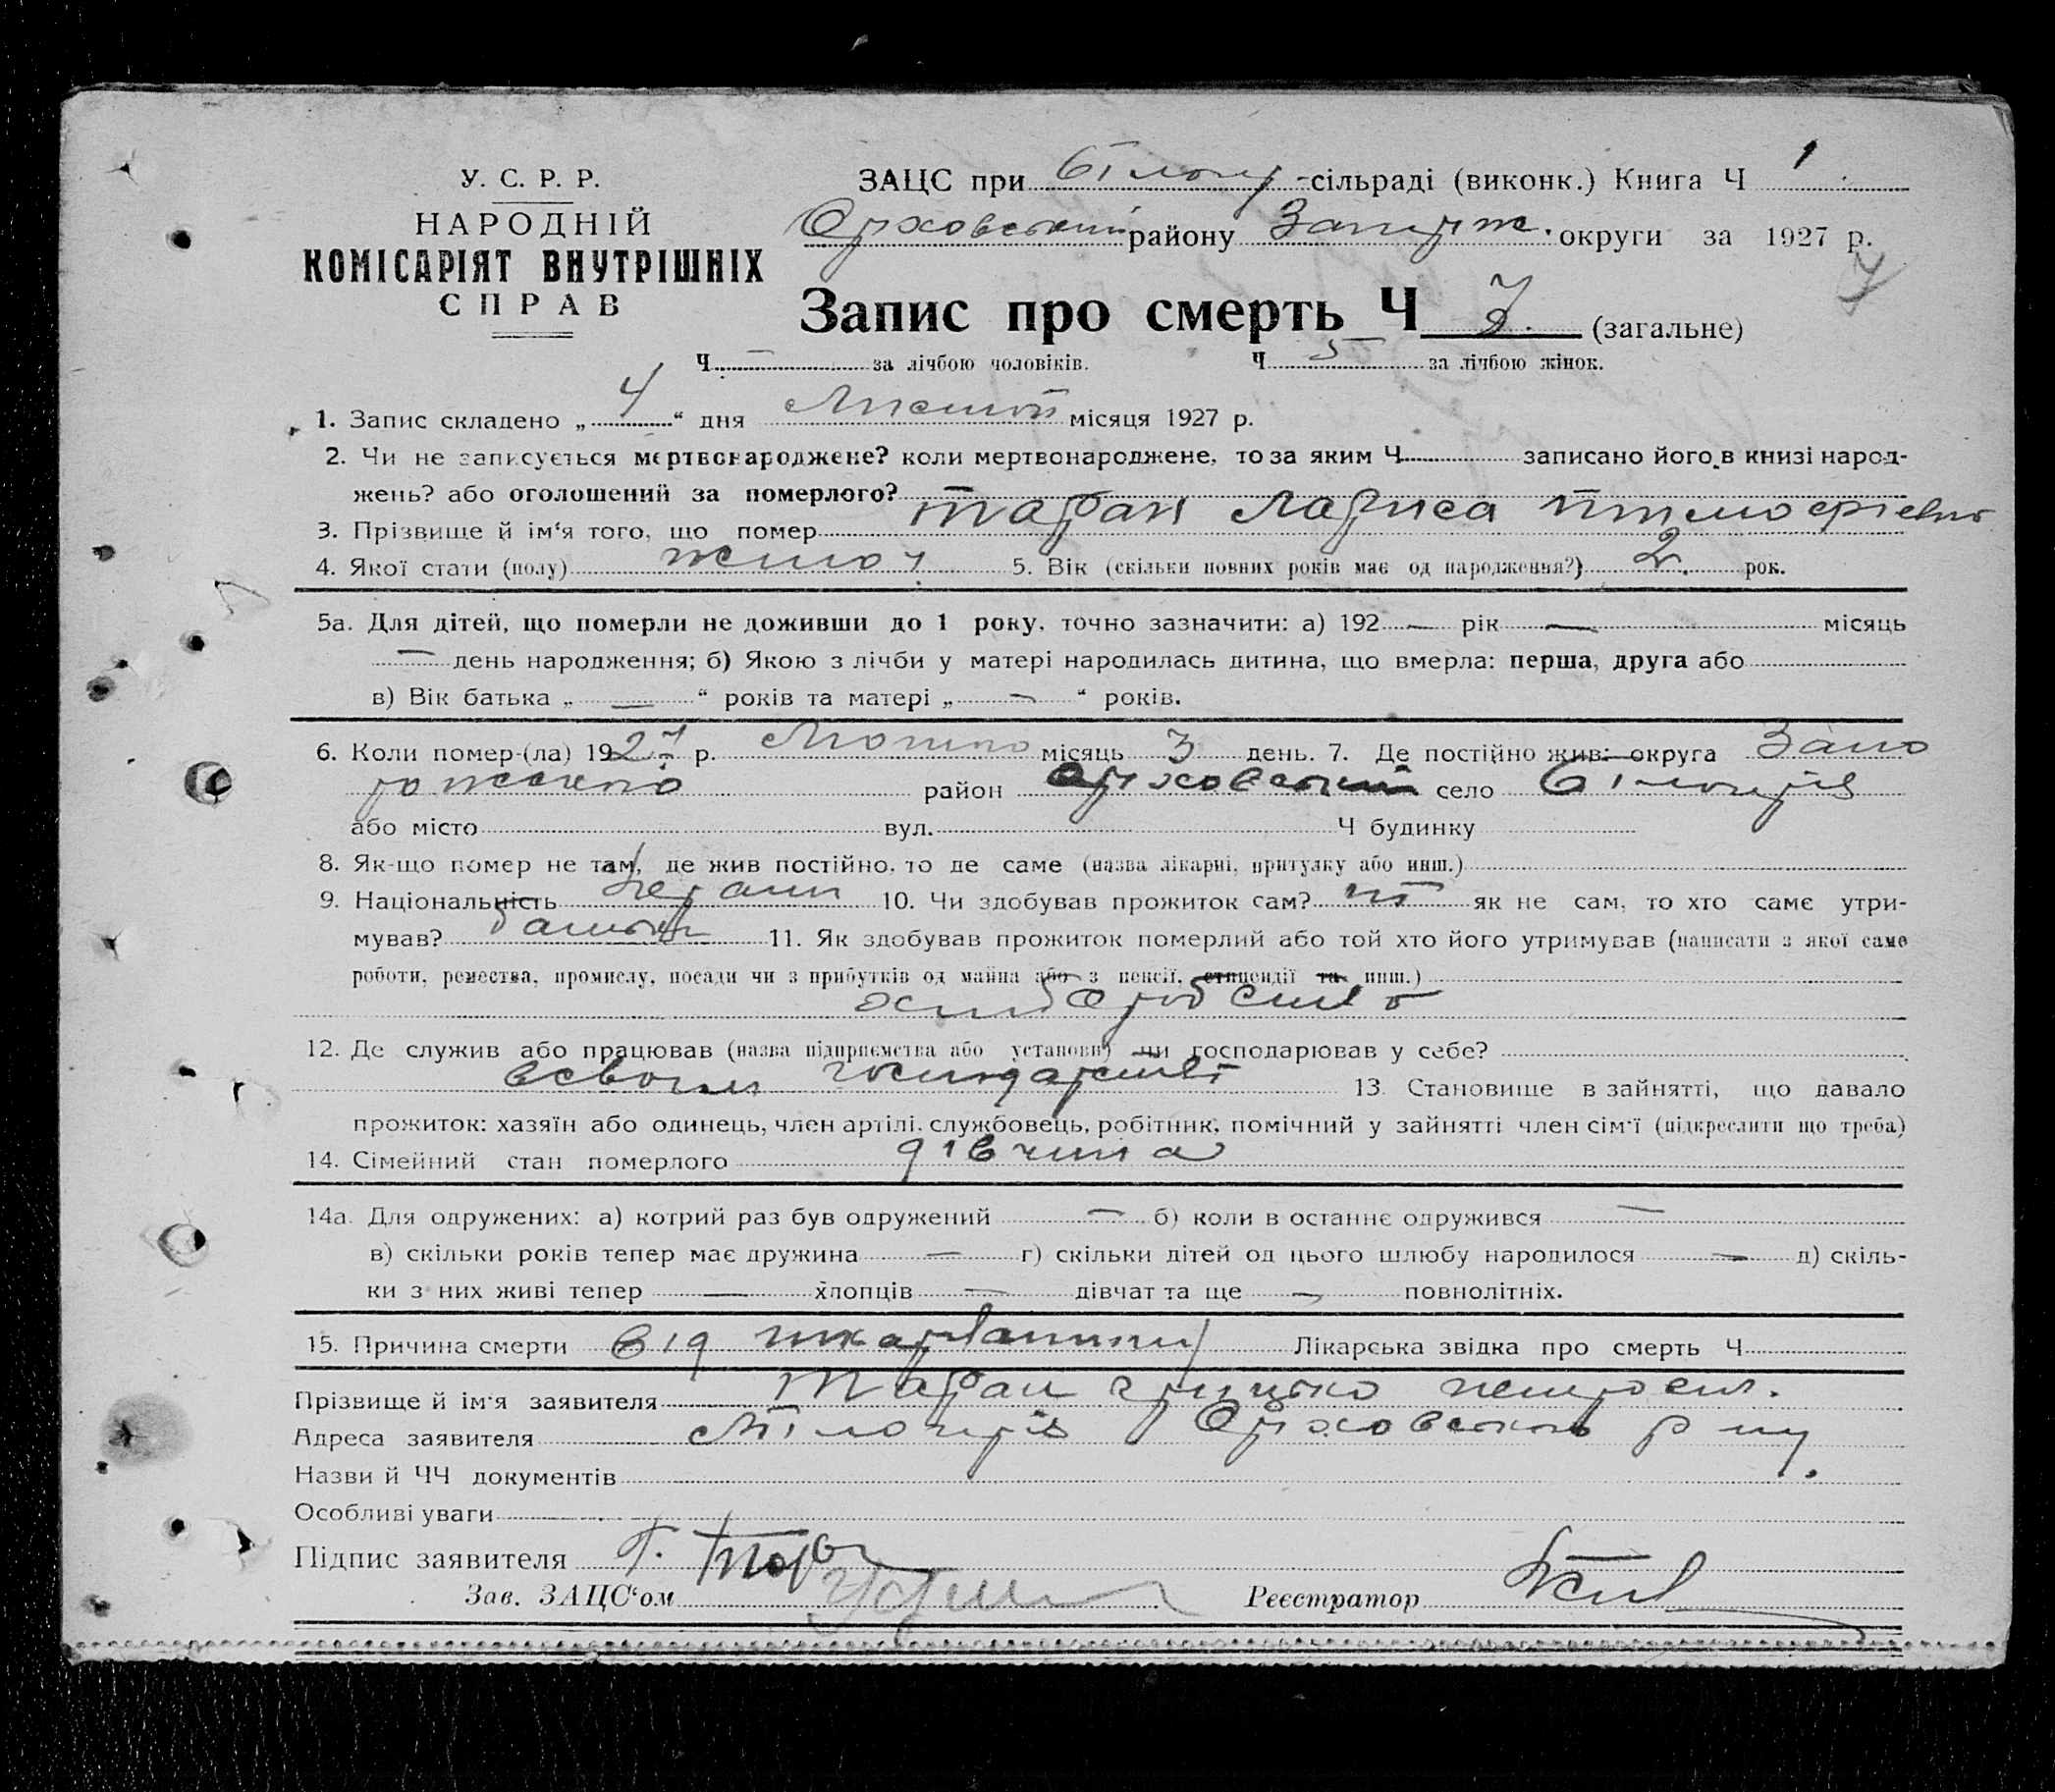 У. С. Р. Р.
НАРОДНІЙ
КОМІСАРІЯТ ВНУТРІШНІХ
СПРАВ
ЗАЦС при Білогір -сільраді (виконк.) Книга Ч 1
Оріховський району Запоріж. округи за 1927 р.
Запис про смерть Ч 7. (загальне)
Ч — за лічбою чоловіків. Ч 5 за лічбою жінок.
1. Запис складено „ 4 “ дня місяця 1927 р.
2. Чи не записується мертвонароджене? коли мертвонароджене, то за яким Ч записано його в книзі народ-
жень? або оголошений за померлого? —
3. Прізвище й ім‘я того, що помер Таран Лариса
4. Якої стати (полу) 5. Вік (скільки повних років має од народження?) 2. рок.
5а. Для дітей, що померли не доживши до 1 року, точно зазначити: а) 192 — рік — місяць
— день народження; б) Якою з лічби у матері народилась дитина, що вмерла: перша, друга або
в) Вік батька „ — “ років та матері „ — “ років.
6. Коли помер-(ла) 1927 р. Лютого місяць 3 день. 7. Де постійно жив: округа Запо
ріжська район Оріховський село Білогірія
або місто вул. Ч будинку
8. Як-що помер не там, де жив постійно, то де саме (назва лікарні, притулку або инш.)
9. Національність 10. Чи здобував прожиток сам? ні як не сам, то хто саме утри-
мував? батьки 11. Як здобував прожиток померлий або той хто його утримував (написати з якої саме
роботи, ремества, промислу, посади чи з прибутків од майна або з пенсії, стипендії та инш.)
хліборобство
12. Де служив або працював (назва підприємства або установи) чи господарював у себе?
всвоїм господарстві 13. Становище в зайнятті, що давало
прожиток: хазяїн або одинець, член артілі, службовець, робітник, помічний у зайнятті член сім‘ї (підкреслити що треба)
14. Сімейний стан померлого дівчина
14а. Для одружених: а) котрий раз був одружений — б) коли в останнє одружився —
в) скільки років тепер має дружина — г) скільки дітей од цього шлюбу народилося — д) скіль-
ки з них живі тепер — хлопців — дівчат та ще — повнолітніх.
15. Причина смерти від шкарлатини Лікарська звідка про смерть Ч
Прізвище й ім‘я заявителя Таран Грицько
Адреса заявителя Білогірія Оріховського р ну.
Назви й ЧЧ документів
Особливі уваги
Підпис заявителя Г. Таран
Зав. ЗАЦС‘ом Реєстратор